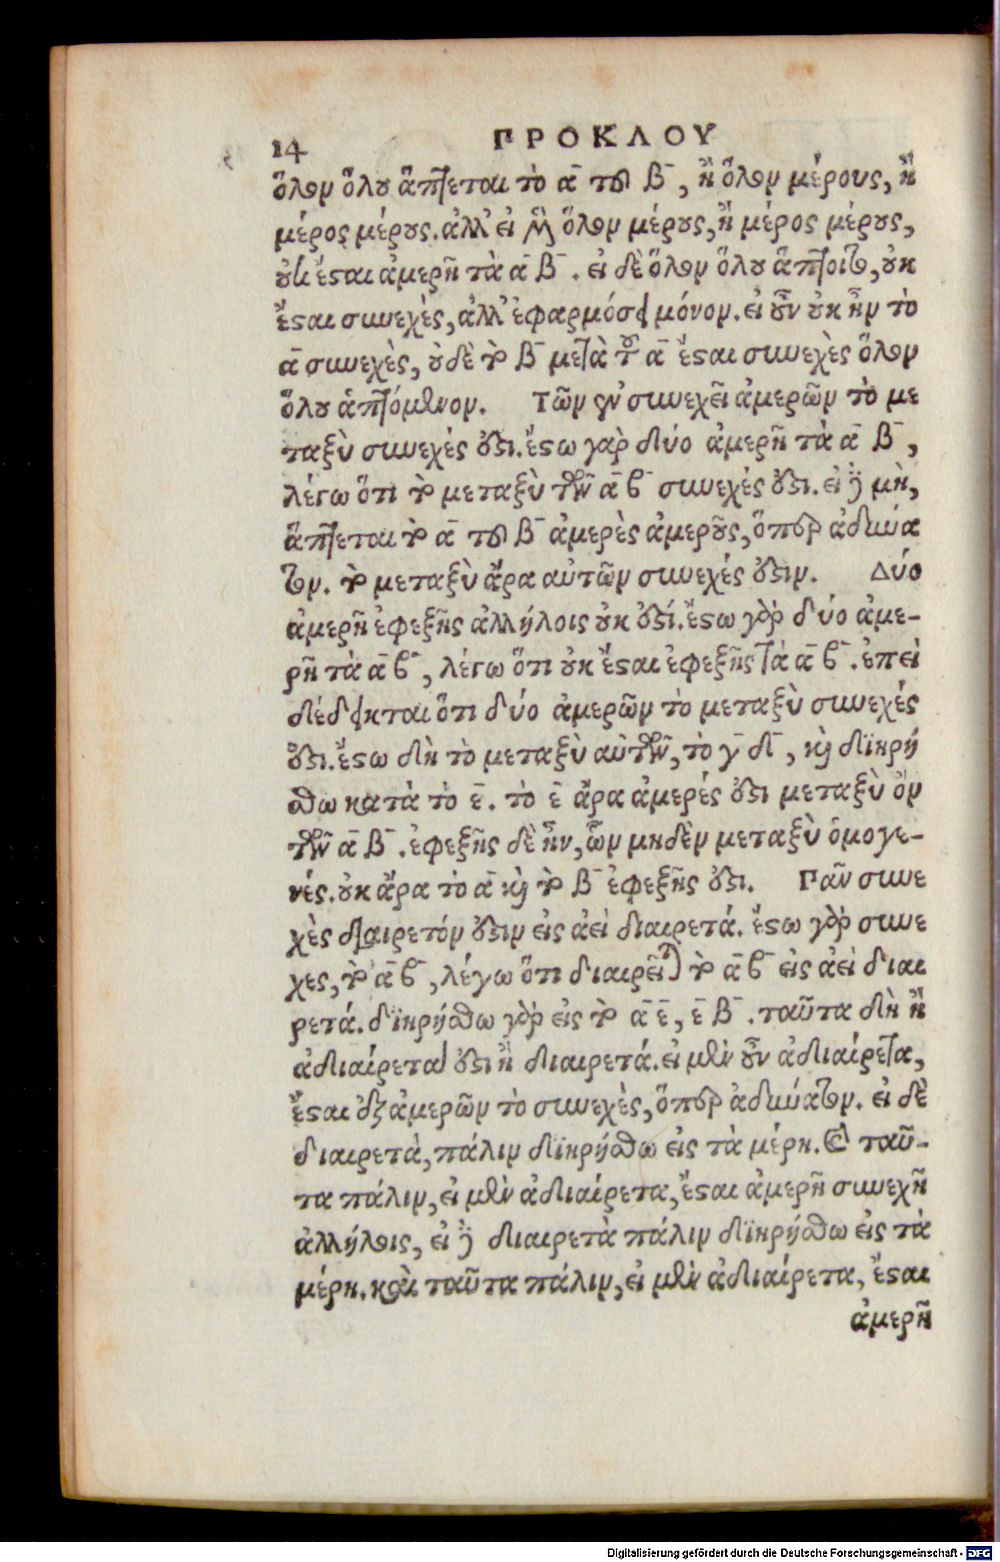 14 ΠΡΟΚΛΟΥ
ὅλον ὅλου ἅπτεται τὸ α̅ τοῦ β̅, ἢ ὅλον μέρους, ἢ
μέρος μέρους. ἀλλ' εἰ μὲν ὅλον μέρους, ἢ μέρος μέρους,
οὐκ ἔσται ἀμερῆ τὰ α̅ β̅. εἰ δὲ ὅλον ὅλου ἅπτοιτο, οὐκ
ἔσται συνεχὲς, ἀλλ' ἐφαρμόσει μόνον. εἰ οὖν οὐκ ἦν τὸ
α̅ συνεχὲς, οὐδὲ τὸ β̅ μετὰ τοῦ α̅ ἔσται συνεχὲς ὅλον
ὅλου ἁπτόμενον. Τῶν ἐν συνεχεῖ ἀμερῶν τὸ με
ταξὺ συνεχές ἐστι. ἔστω γὰρ δύο ἀμερῆ τὰ α̅ β̅,
λέγω ὅτι τὸ μεταξὺ τῶν α̅ β̅ συνεχές ἐστι. εἰ δὲ μὴ,
ἅπτεται τὸ α̅ τοῦ β̅ ἀμερὲς ἀμεροῦς, ὅπερ ἀδύνα
τον. τὸ μεταξὺ ἄρα αὐτῶν συνεχές ἐστιν. Δύο
ἀμερῆ ἐφεξῆς ἀλλήλοις οὐκ ἐστί. ἔστω γὰρ δύο ἀμε-
ρῆ τὰ α̅ β̅, λέγω ὅτι οὐκ ἔσται ἐφεξῆς τὰ α̅ β̅. ἐπεὶ
δέδεικται ὅτι δύο ἀμερῶν τὸ μεταξὺ συνεχές
ἐστι. ἔστω δὴ τὸ μεταξὺ αὐτῶν, τὸ γ̅ δ̅, καὶ διῃρή
σθω κατὰ τὸ ε̅. τὸ ε̅ ἄρα ἀμερές ἐστι μεταξὺ ὂν
τῶν α̅ β̅. ἐφεξῆς δὲ ἦν, ὧν μηδὲν μεταξὺ ὁμογε-
νές. οὐκ ἄρα τὸ α̅ καὶ τὸ β̅ ἐφεξῆς ἐστι. Πᾶν συνε
χὲς διαιρετόν ἐστιν εἰς ἀεὶ διαιρετά. ἔστω γὰρ συνε
χες, τὸ α̅ β̅, λέγω ὅτι διαιρεῖται τὸ α̅ β̅ εἰς ἀεὶ διαι
ρετά. διῃρήσθω γὰρ εἰς τὸ α̅ ε̅, ε̅ β̅. ταῦτα δὴ ἢ
ἀδιαίρετα ἐστι ἢ διαιρετά. εἰ μὲν οὖν ἀδιαίρετα,
ἔσται ἐξ ἀμερῶν τὸ συνεχὲς, ὅπερ ἀδύνατον. εἰ δὲ
διαιρετὰ, πάλιν διῃρήσθω εἰς τὰ μέρη. καὶ ταῦ-
τα πάλιν, εἰ μὲν ἀδιαίρετα, ἔσται ἀμερῆ συνεχῆ
ἀλλήλοις, εἰ δὲ διαιρετὰ πάλιν διῃρήσθω εἰς τὰ
μέρη. καὶ ταῦτα πάλιν, εἰ μὲν ἀδιαίρετα, ἔσται
ἀμερῆ
Digitalisierung gefördert durch die Deutsche Forschungsgemeinschaft - DFG